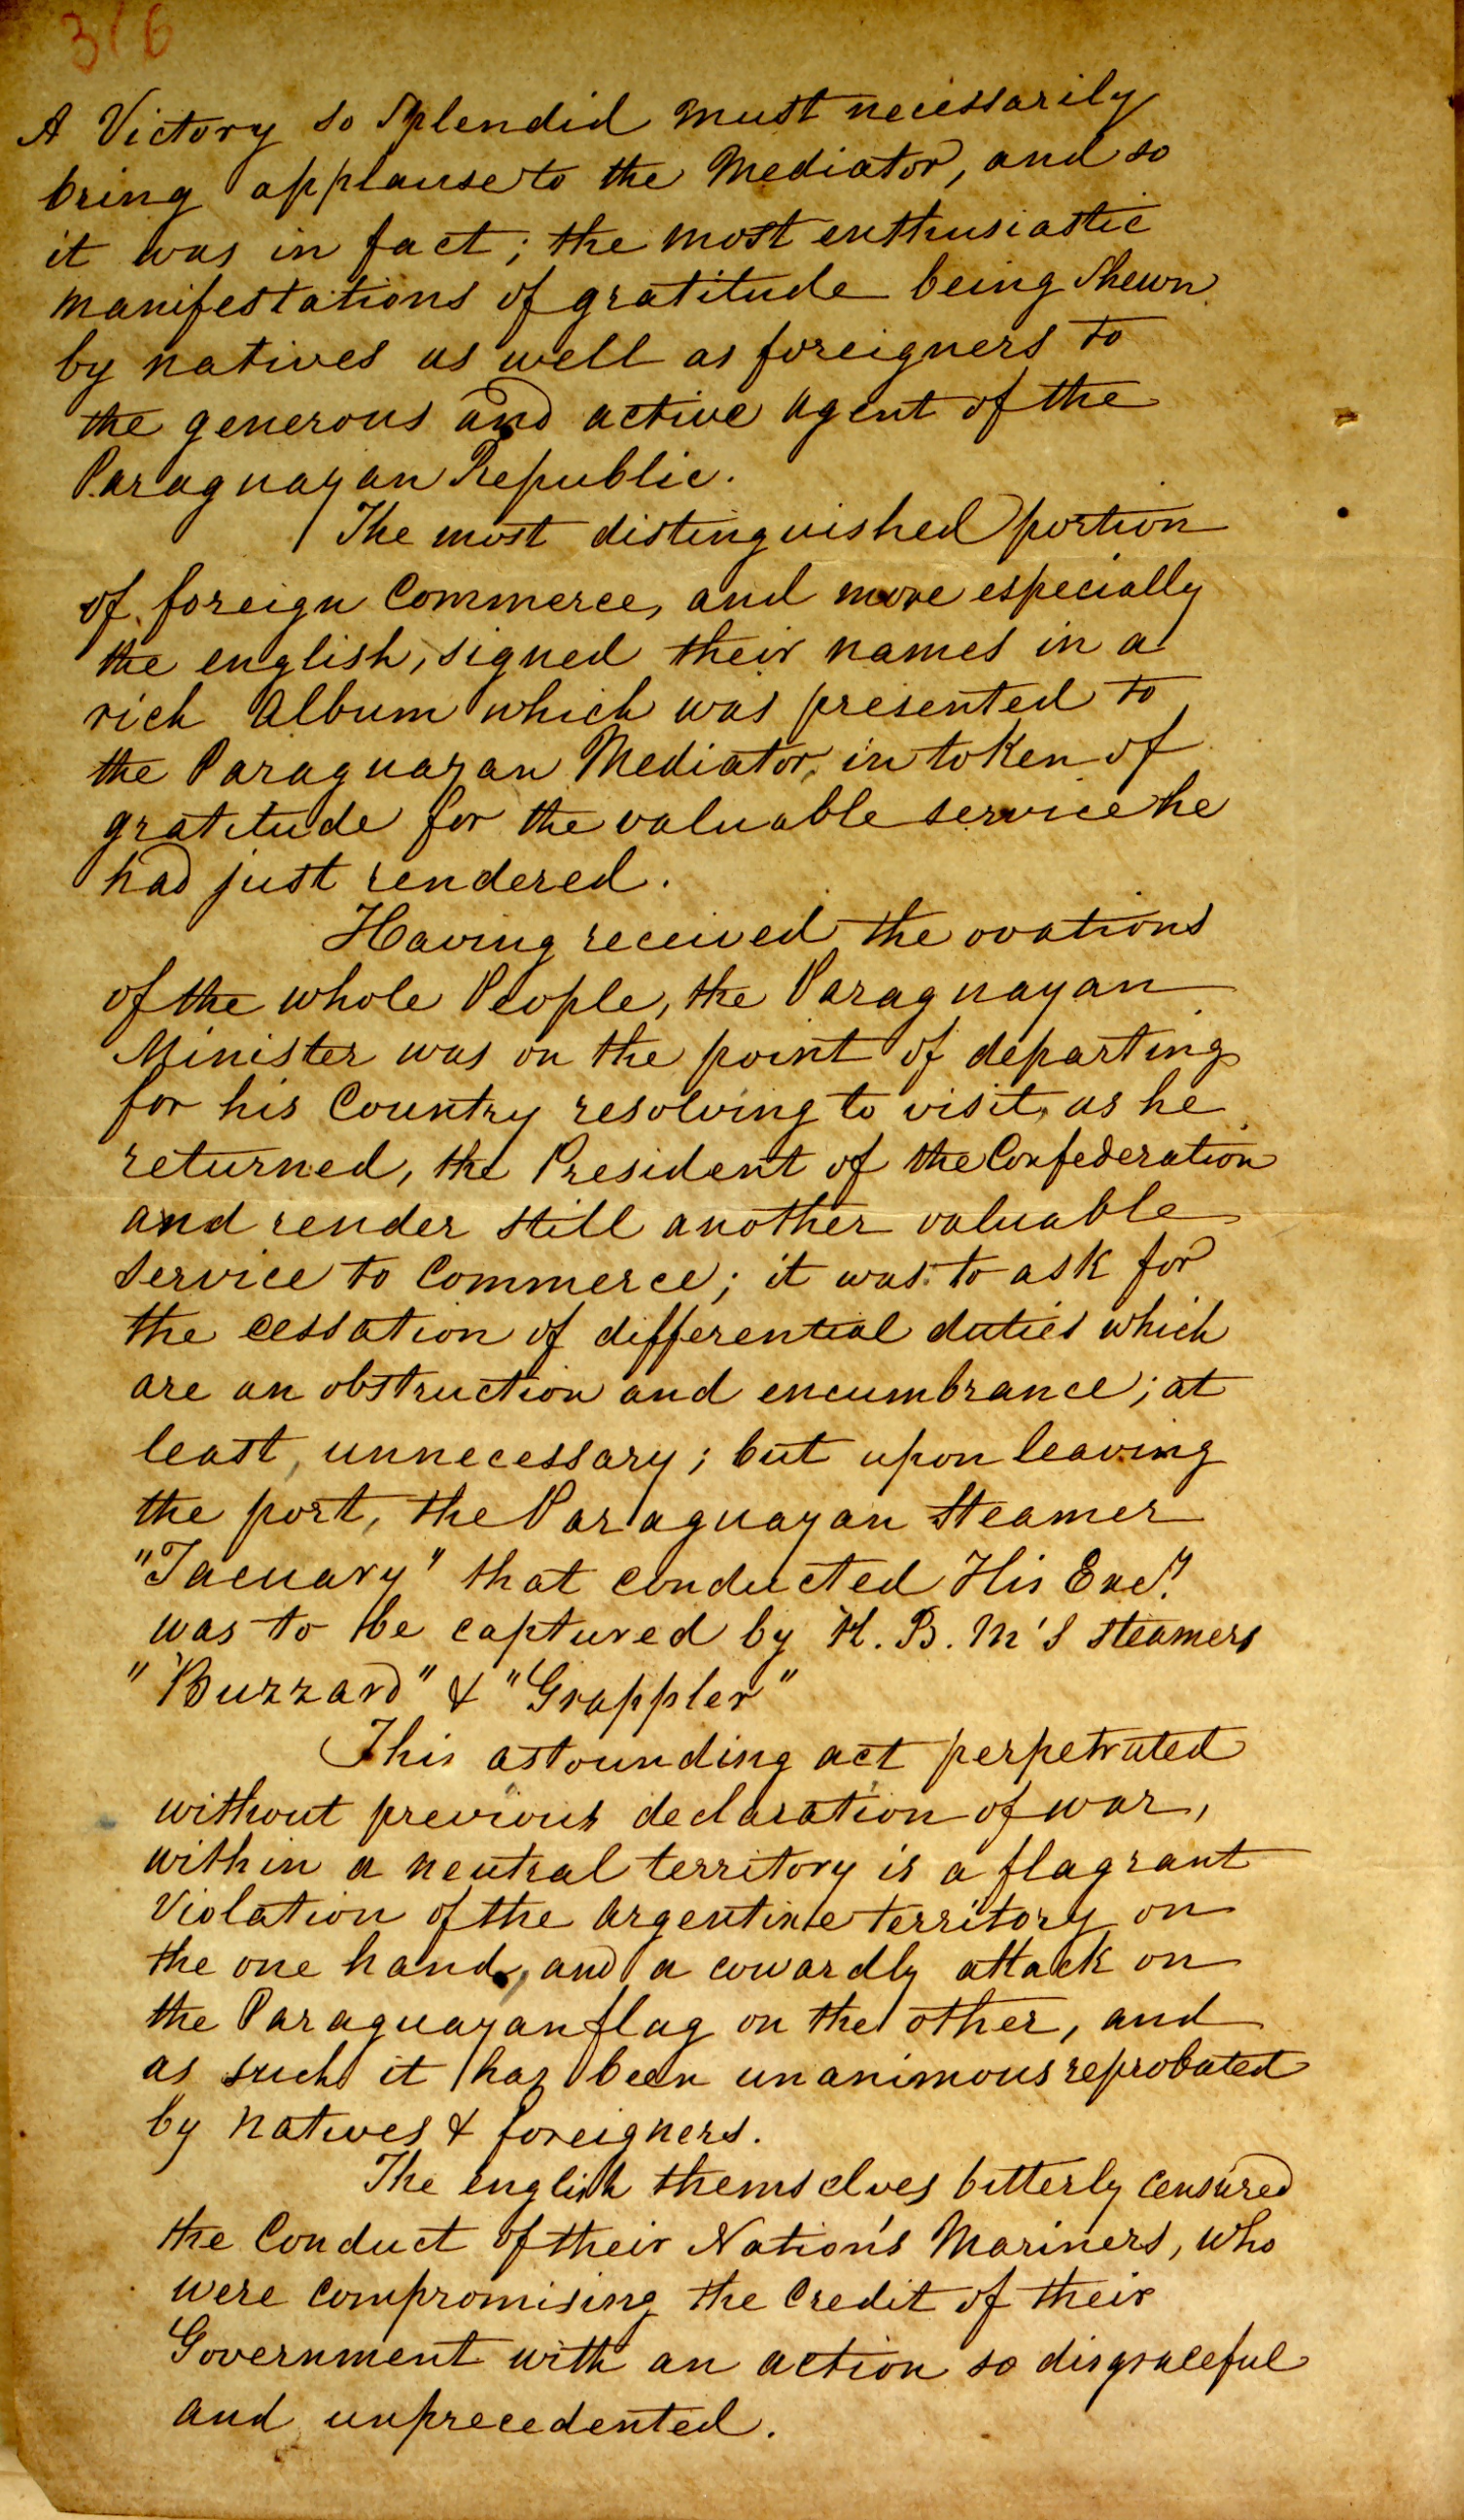 316
A Victory so Splendid must necessarily
bring applause to the Mediator, and so
it was in fact; the most enthusiastic
manifestations of gratitude being shewn
by natives as well as foreigners to
the generous and active agent of the
Paraguayan Republic.
The most distinguished portion
of foreign Commerce, and more especially
the english, signed their names in a
rich Album which was presented to
the Paraguayan Mediator, in token of
gratitude for the valuable service he
had just rendered.
Having received the ovations
of the whole People, the Paraguayan
Minister was on the point of departing
for his Country resolving to visit, as he
returned, the President of the Confederation
and render still another valuable
service to Commerce; it was to ask for
the cessation of differential duties which
are an obstruction and encumbrance; at
least, unnecessary; but upon leaving
the port, the Paraguayan Steamer
"Tacuary" that conducted His Exc.y
was to be captured by H. B. M's steamers
"Buzzard" & "Grappler"
This astounding act perpetrated
without previous declaration of war,
within a neutral territory is a flagrant
Violation of the Argentine territory on
the one hand, and a cowardly attack on
the Paraguayan flag on the other, and
as such it has been unanimous reprobated
by natives & foreigners.
The english themselves bitterly censured
the Conduct of their Nation's Mariners, who
were compromising the Credit of their
Government with an action so disgraceful
and unprecedented.